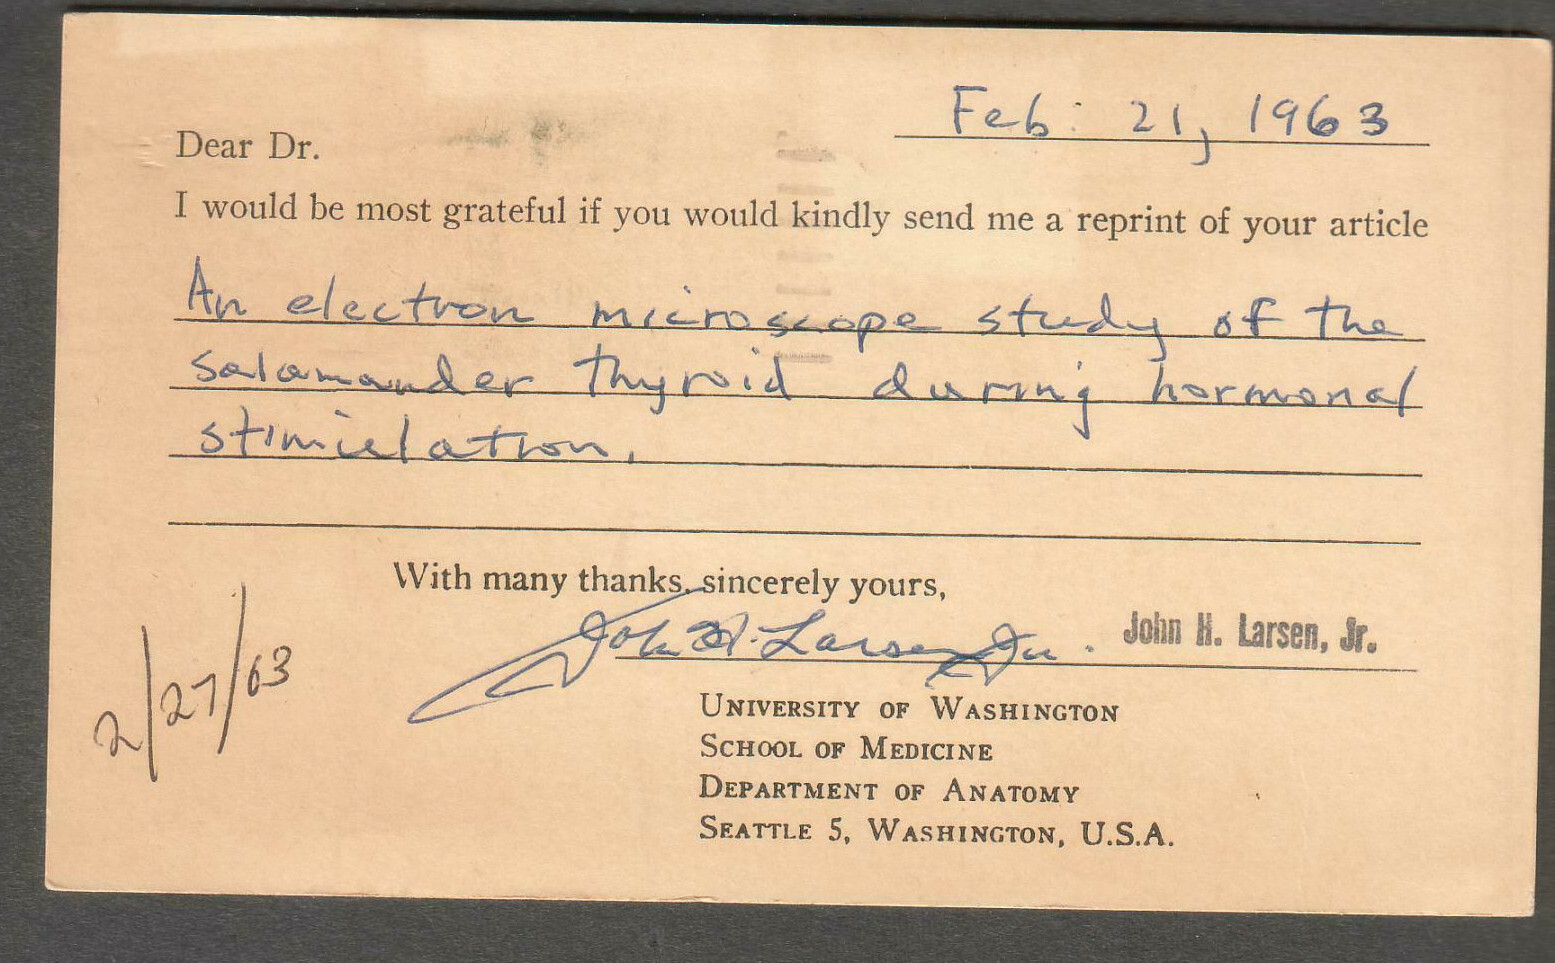 Feb. 21, 1963
Dear Dr.
I would be most grateful if you would kindly send me a reprint of your article
An electron microscope study of the
salamander thyroid during hormonal
stimulation.
With many thanks, sincerely yours,
John H. Larsen Jr. John H. Larsen, Jr.
2/27/63
UNIVERSITY OF WASHINGTON
SCHOOL OF MEDICINE
DEPARTMENT OF ANATOMY
SEATTLE 5, WASHINGTON, U.S.A.